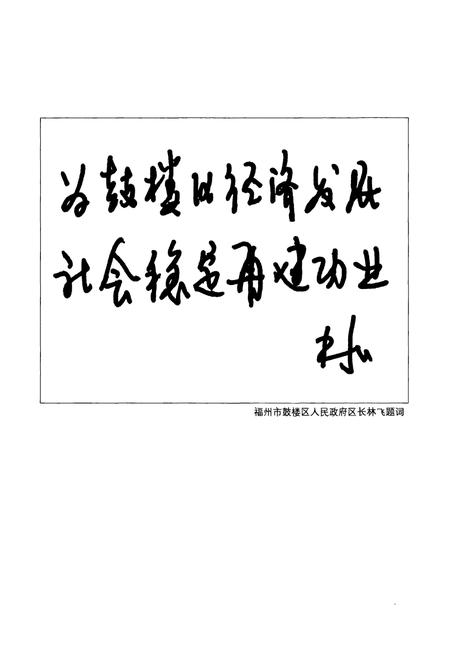 为鼓楼的经济发展
社会稳定再建功业
林飞
福州市鼓楼区人民政府区长林飞题词